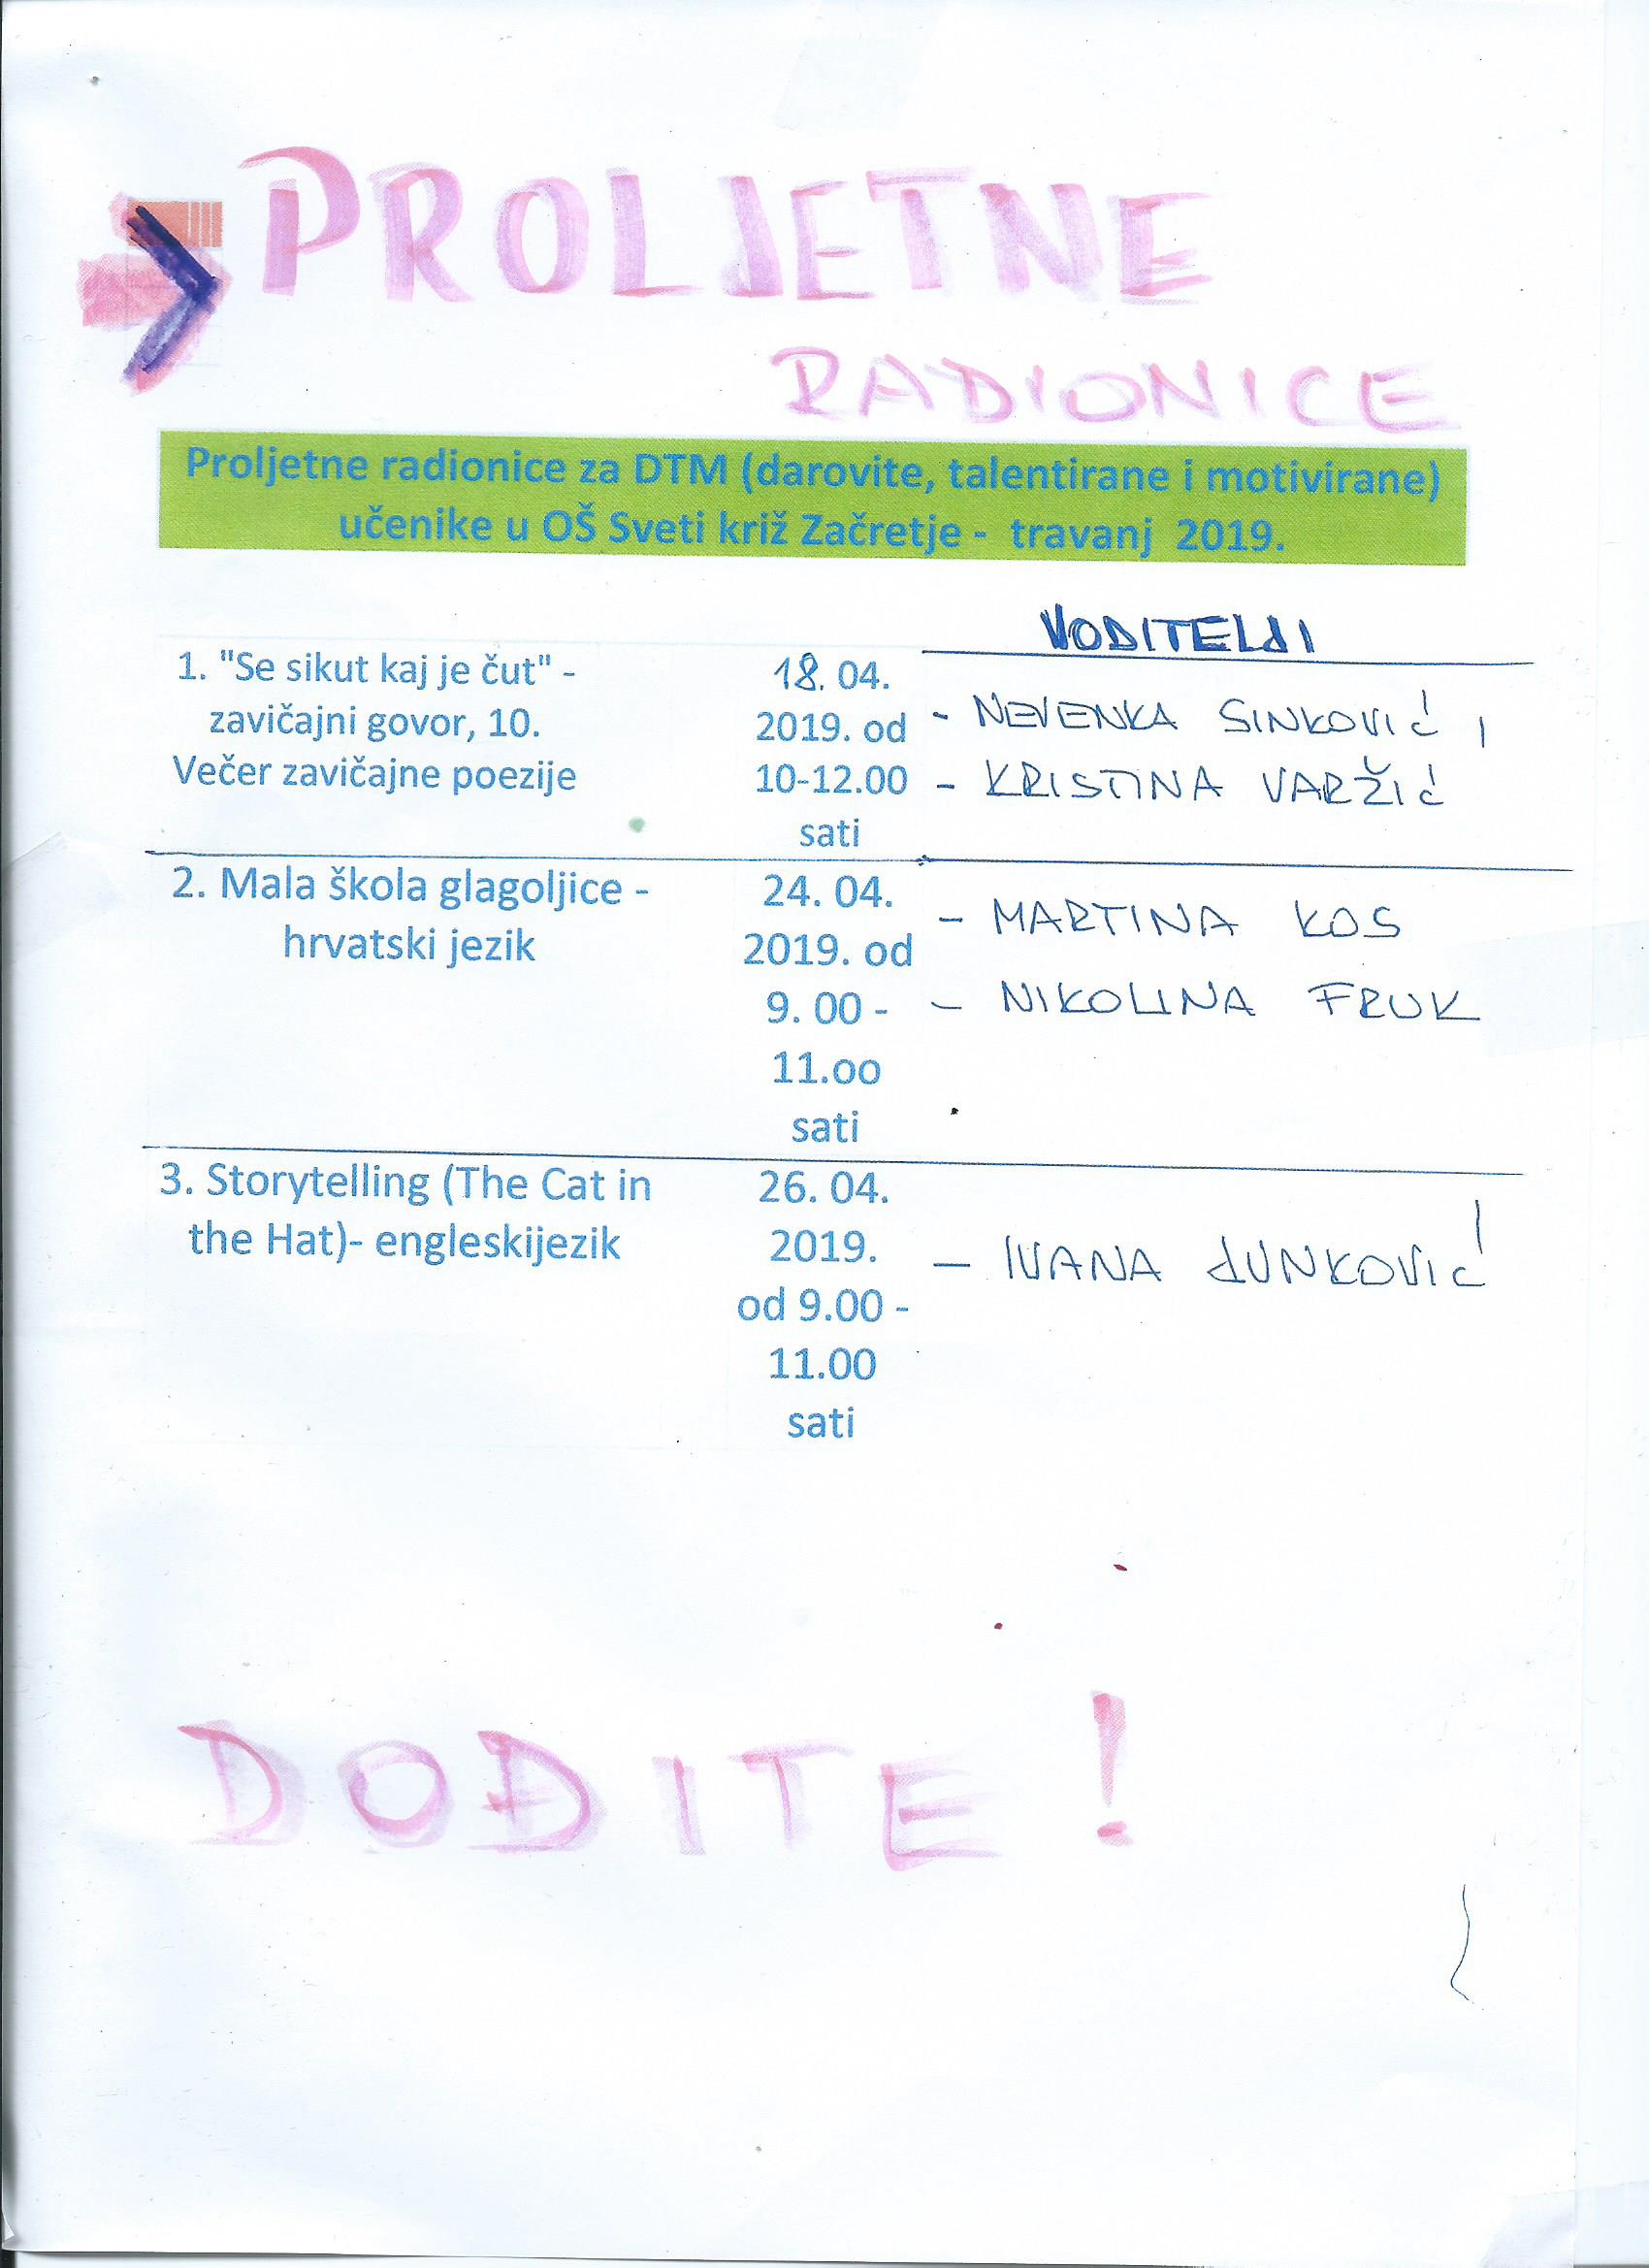 PROLJETNE
RADIONICE
Proljetne radionice za DTM (darovite, talentirane i motivirane)
učenike u OŠ Sveti križ Začretje - travanj 2019.
VODITELJI
1. "Se sikut kaj je čut" -
zavičajni govor, 10.
Večer zavičajne poezije
18. 04.
2019. od
10-12.00
sati
- NEVENKA SINKOVIĆ,
- KRISTINA VARŽIĆ
2. Mala škola glagoljice -
hrvatski jezik
24. 04.
2019. od
9. 00 -
11.oo
sati
- MARTINA KOS
- NIKOLINA FRUK
3. Storytelling (The Cat in
the Hat)- engleskijezik
26. 04.
2019.
od 9.00 -
11.00
sati
- IVANA JUNKOVIĆ
DOĐITE!